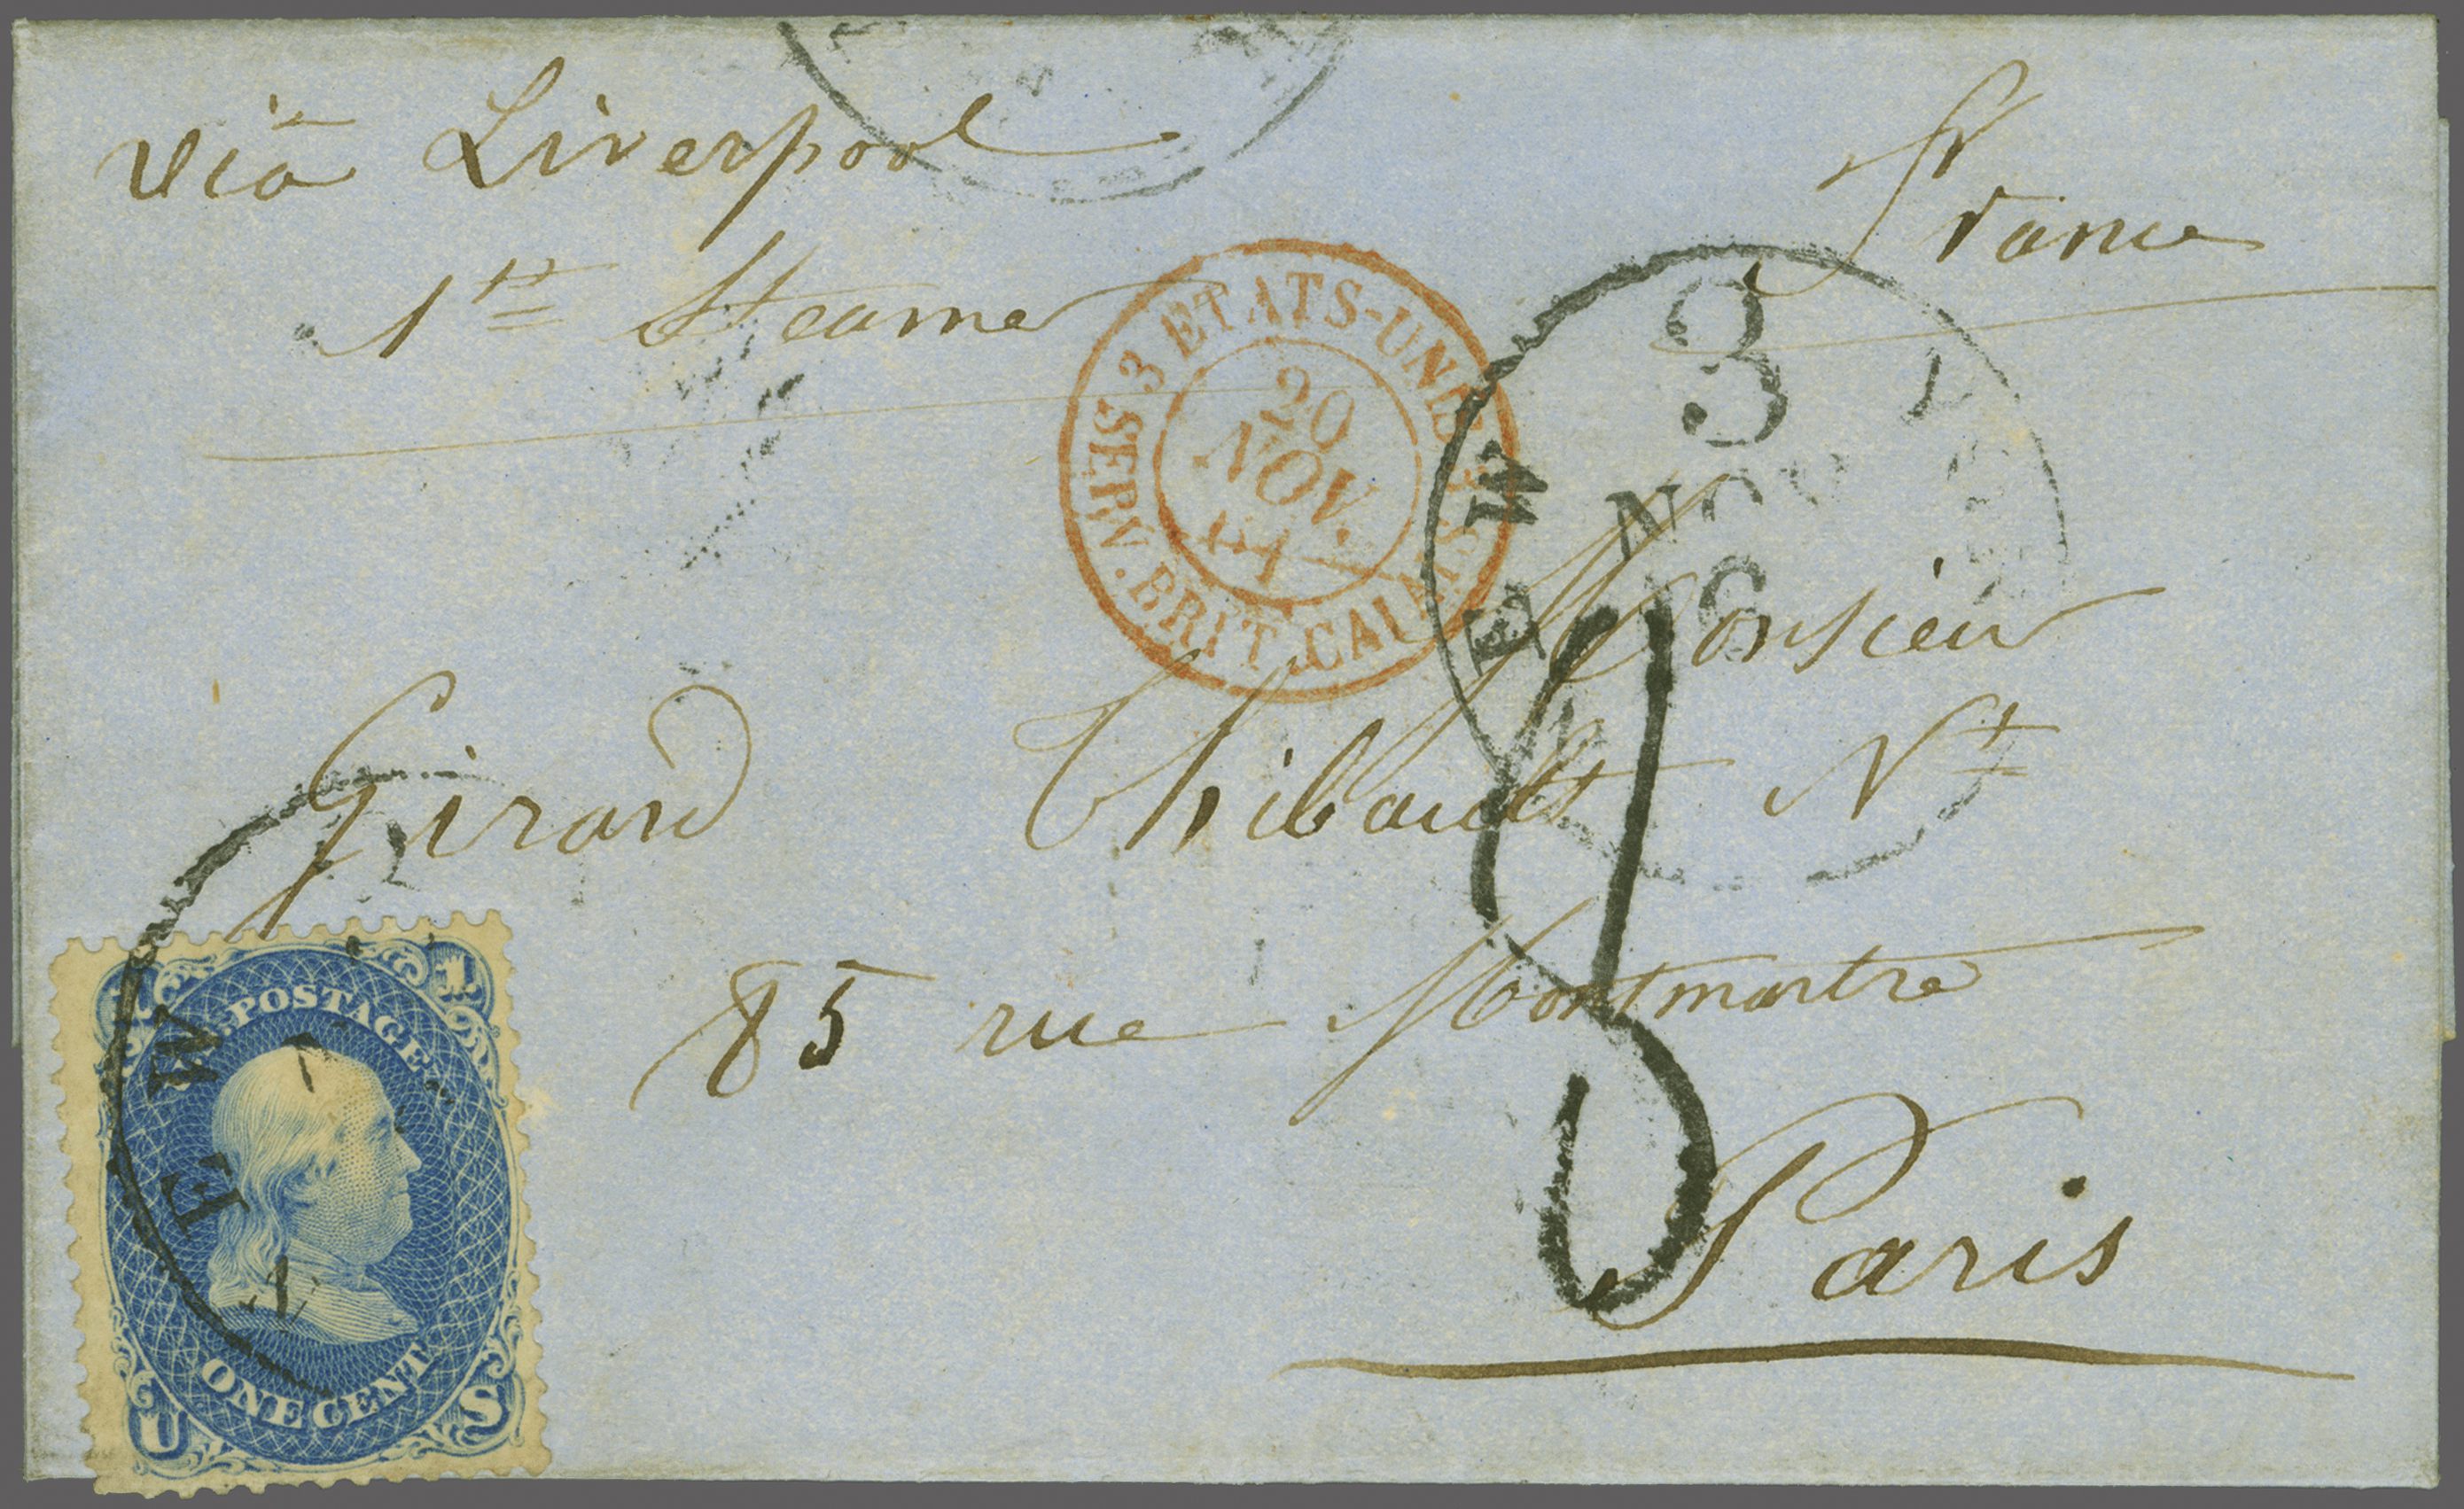 viā Liverpool
1st Steamer
France
3 ETATS-UNIS 3
SERV. BRIT. CALAIS
20
NOV.
61
3
NOV
6
N E W Y
Monsieur
Girard Thibault Nt
85 rue Montmartre
Paris
8
N E W
U.S. POSTAGE
1 1
ONE CENT
U S